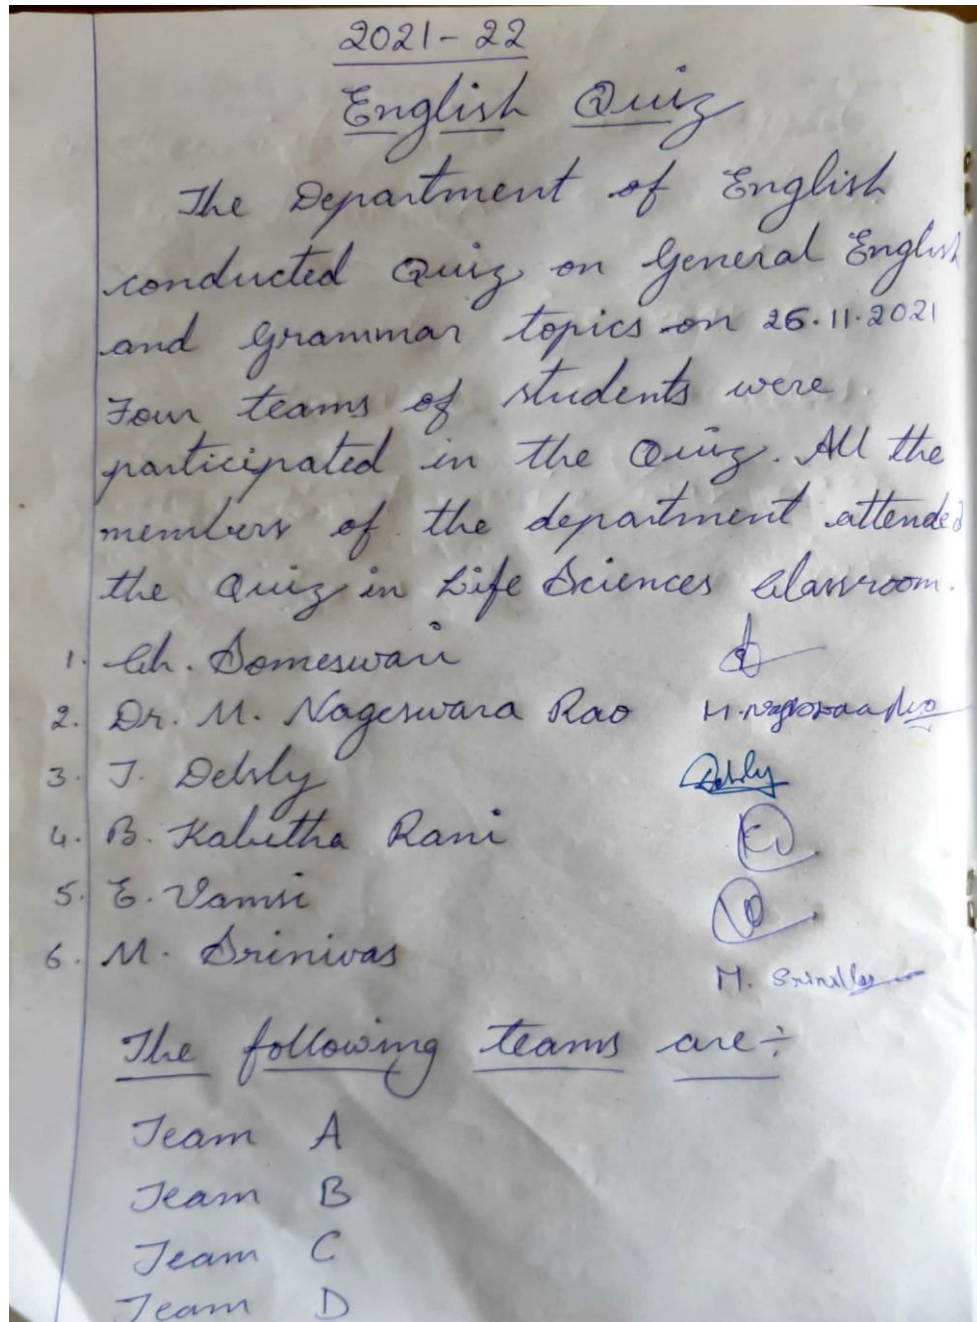 2021-22
English Quiz
The Department of English
conducted Quiz on General English
and Grammar topics on 26.11.2021
Four teams of students were
participated in the Quiz. All the
members of the department attended
the Quiz in Life Sciences Classroom.
1. Ch. Someswari
2. Dr. M. Nageswara Rao
3. J. Debly
4. B. Kabitha Rani
5. E. Vamsi
6. M. Srinivas
M. Srinivas
The following teams are:-
Team A
Team B
Team C
Team D